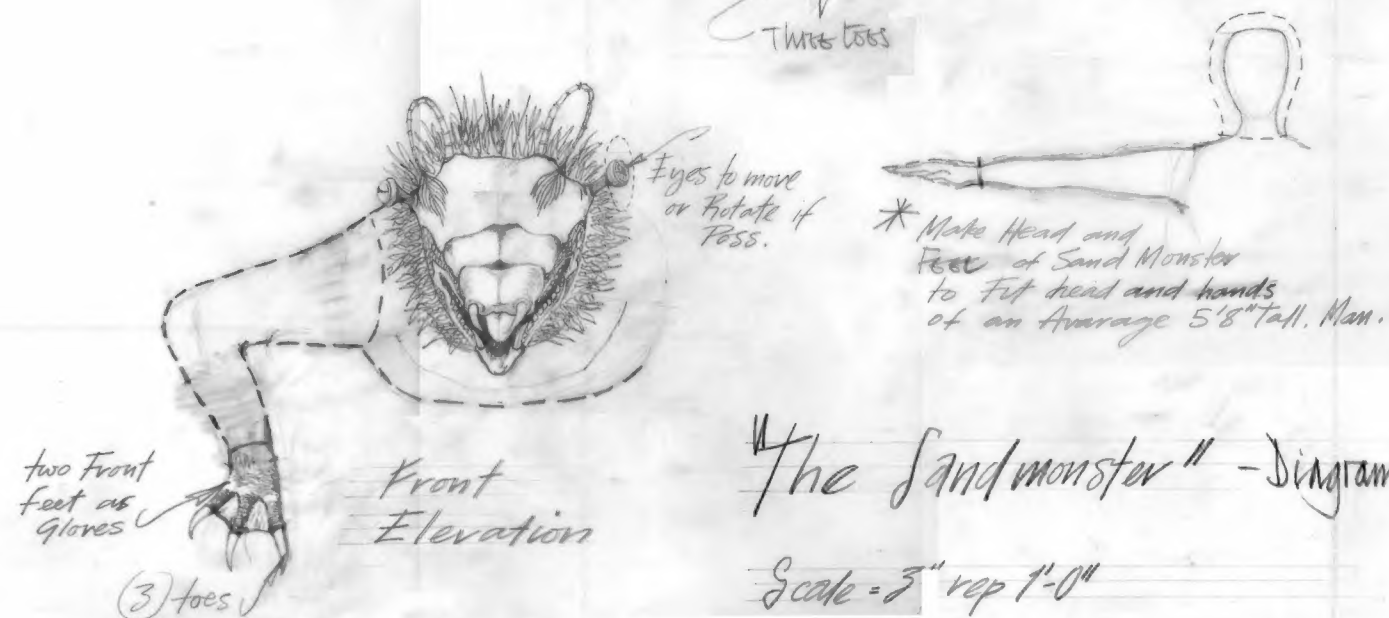 Three toes
Eyes to move
or Rotate if
Poss.
* Make Head and
Feet of Sand Monster
to Fit head and hands
of an Avarage 5'8" Tall. Man.
two Front
feet as
Gloves
(3) toes
Front
Elevation
"The Sandmonster" - Diagram
Scale = 3" rep 1'-0"